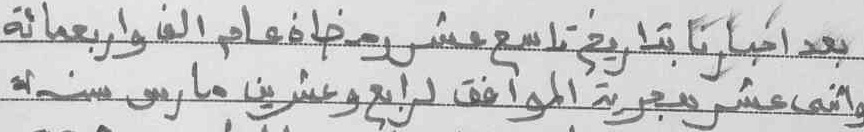 بعد اخبارنا بتاريخ تاسع عشر رمضان عام الف واربعمائة
واثنى عشر هجرية الموافق لرابع وعشرين مارس سنة